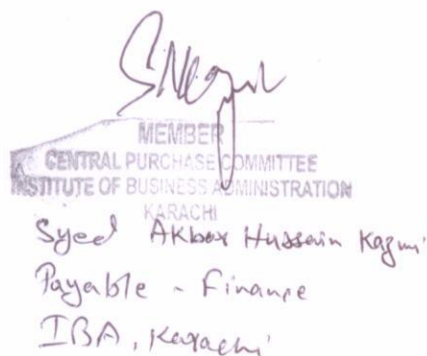 MEMBER
CENTRAL PURCHASE COMMITTEE
INSTITUTE OF BUSINESS ADMINISTRATION
KARACHI
Syed AKbar Hussain Kazmi
Payable - Finance
IBA, Karachi